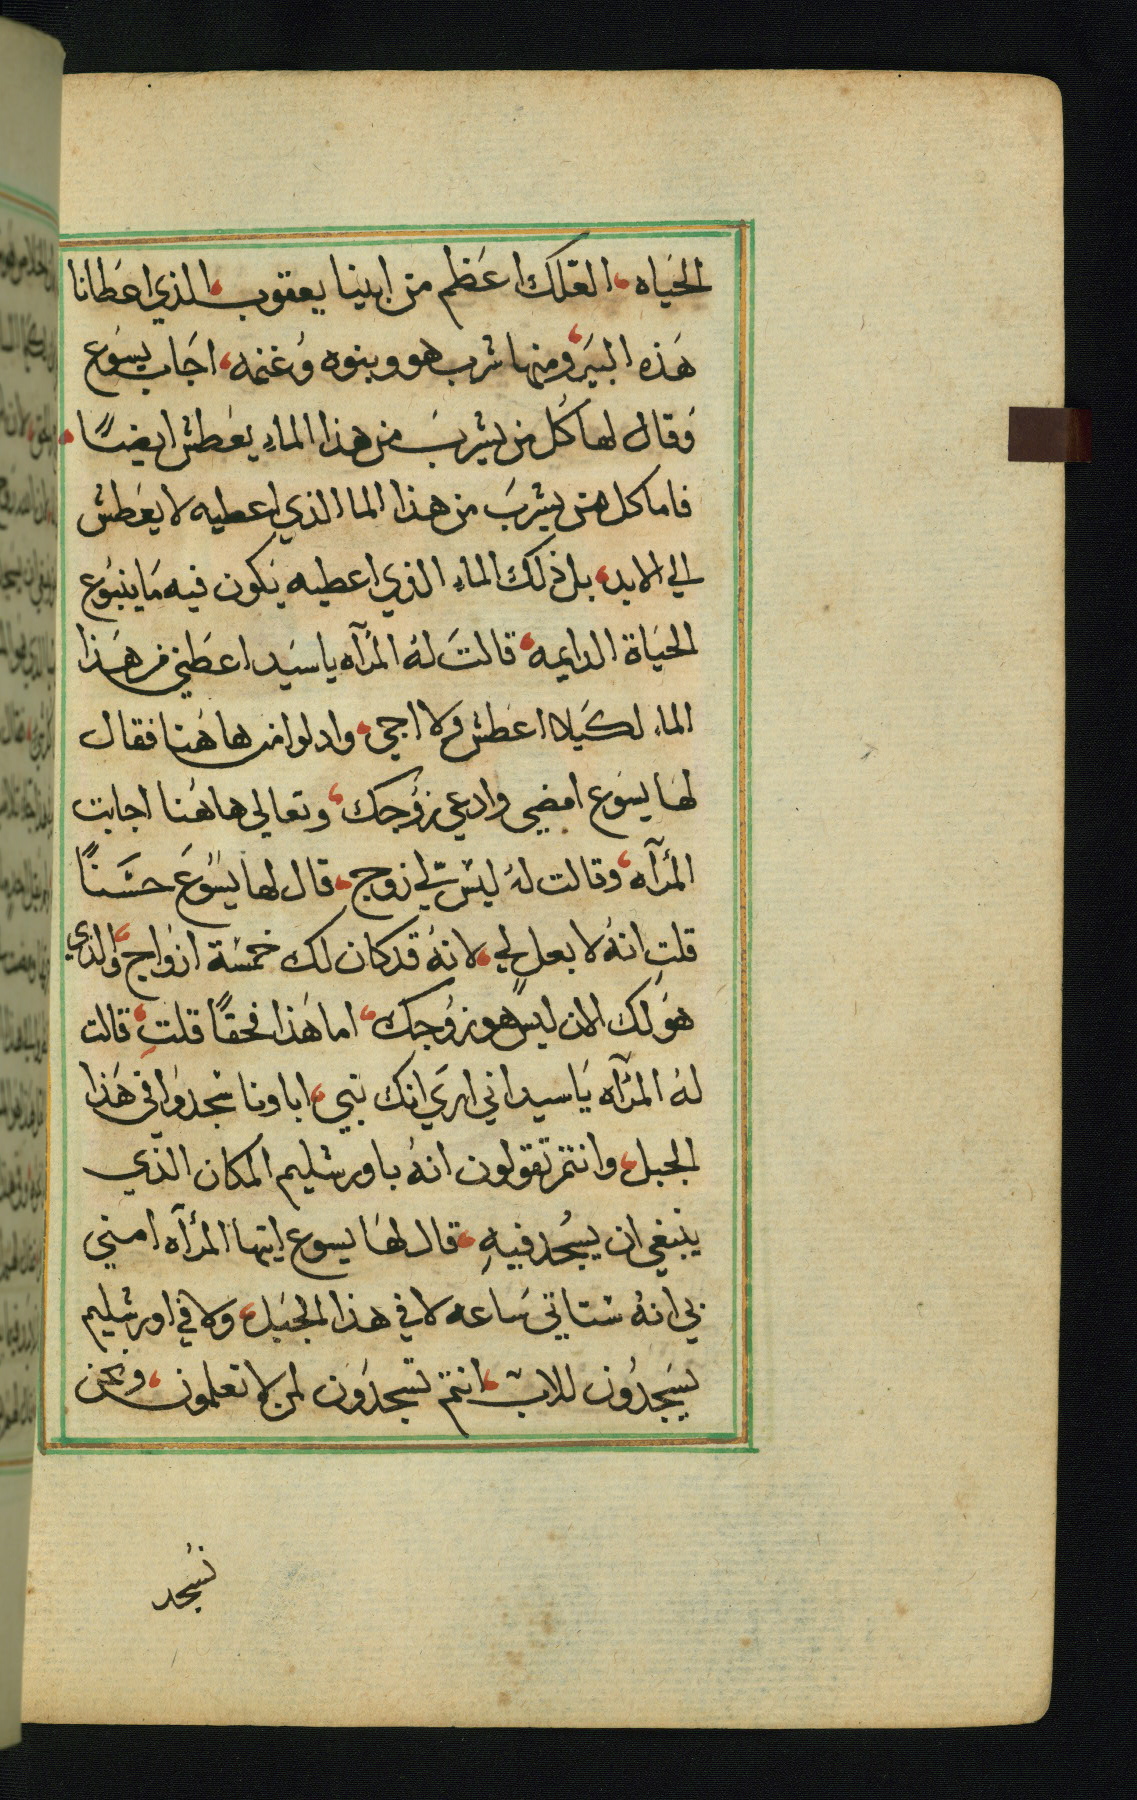 الحَياه، العَلك اعَظم من ابينا يعقوب، الذي اعَطانا
هَذه البيَر، ومنها شرب هو وبنوه وُغنمه، اجَاب يسوَع
وَقال لها كُل من يشربَ من هذا الماءِ يعَطش ايضًا،
فاما كل من يشربَ من هذا الما الذي اعطيه لا يعَطش
الي الابد، بل ذلك الماء الذي اعطيه يَكون فيه مَا ينبَوع
الحَياة الدايمه، قالتَ لهُ المرآه يا سَيد اعَطني من هَذا
الماء لكَيلا اعَطش ولا اجي، وادلوا من هاهُنا فقال
لهَا يسوَع امضي وادعي زوُجك، وتعالي هاهُنا اجابت
المرآه، وقالت لهُ ليسَ لي زوج، قال لها يسُوعَ حسَنًا
قلتِ انهُ لا بعل لي، لانهُ قد كان لك خمسَة ازوَاج، والذي
هوَ لك الان ليسَ هو زوُجك، اما هَذا فحقًا قلتِ، قالت
لهُ المرآه يَا سيد اني اريَ انك نبي، اباونا سَجدوَا في هَذا
الجبل، وانتم تقولون انهُ باورشليم المكان الذي
ينبغي ان يسُجد فيهِ، قال لهَا يسوع ايتها المرآه امني
بي انهُ ستاتي سَاعه لا في هذا الجَبل، ولا في اورشليم
يسَجدُون للاب، انتم تسجدَون لمن لا تعلمون، ونحن
نسُجد